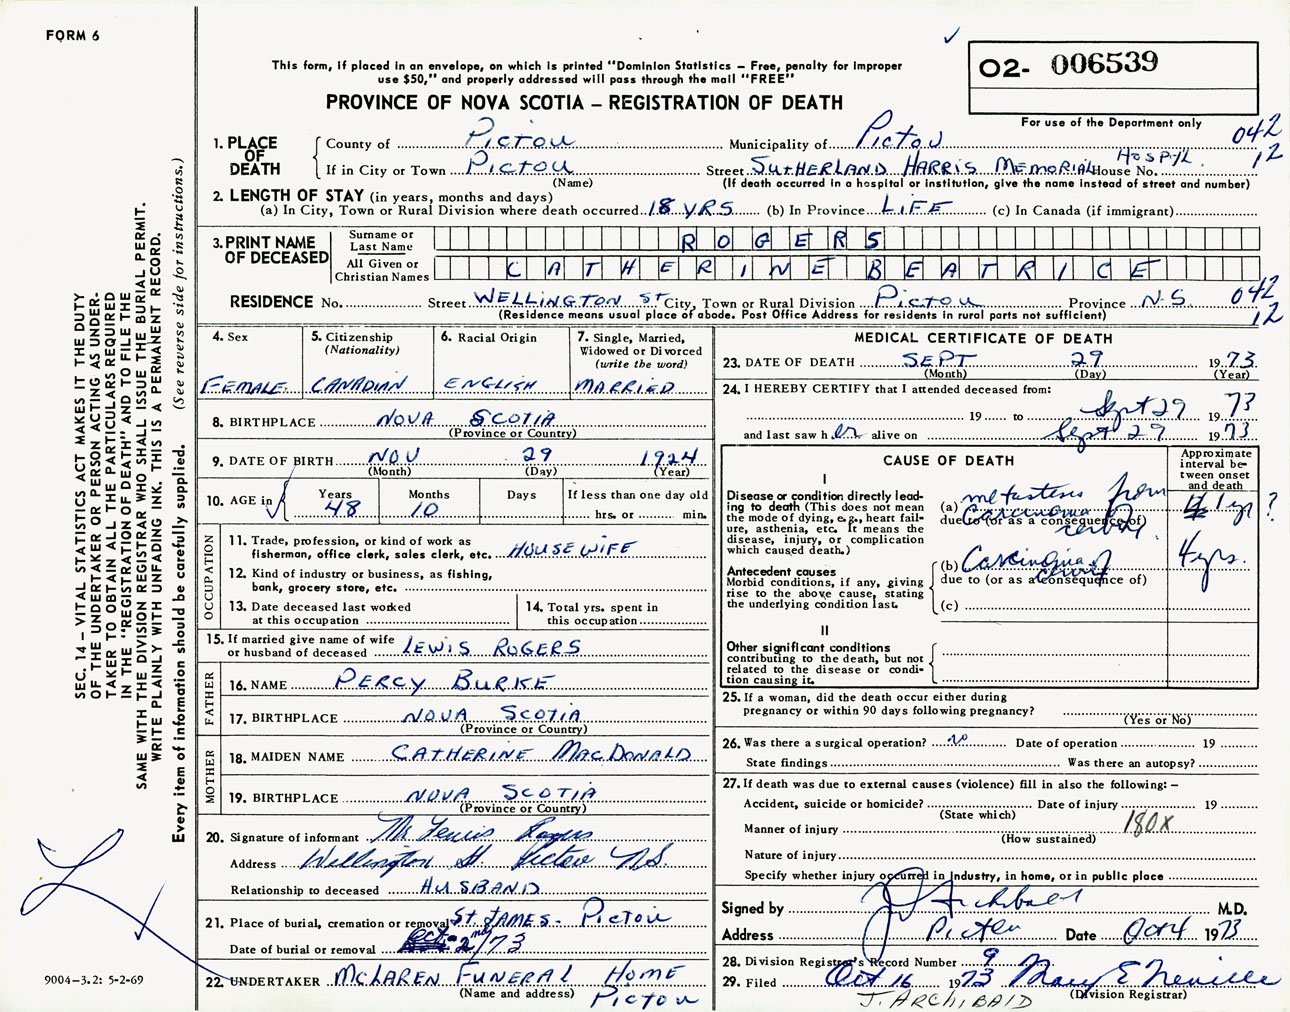 FORM 6
This form, if placed in an envelope, on which is printed "Dominion Statistics – Free, penalty for improper
use $50," and properly addressed will pass through the mail "FREE"
PROVINCE OF NOVA SCOTIA – REGISTRATION OF DEATH
O2- 006539
For use of the Department only
042
12
1. PLACE OF DEATH
County of Pictou Municipality of Pictou
If in City or Town Pictou Street SUTHERLAND HARRIS MEMORIAL HOSPTL. House No.
(Name) (If death occurred in a hospital or institution, give the name instead of street and number)
2. LENGTH OF STAY (in years, months and days)
(a) In City, Town or Rural Division where death occurred 18 YRS (b) In Province LIFE (c) In Canada (if immigrant)
3. PRINT NAME OF DECEASED
Surname or Last Name ROGERS
All Given or Christian Names CATHERINE BEATRICE
RESIDENCE No. Street WELLINGTON ST City, Town or Rural Division Pictou Province N.S. 042
(Residence means usual place of abode. Post Office Address for residents in rural parts not sufficient) 12
4. Sex
FEMALE
5. Citizenship
(Nationality)
CANADIAN
6. Racial Origin
ENGLISH
7. Single, Married,
Widowed or Divorced
(write the word)
MARRIED
8. BIRTHPLACE NOVA SCOTIA
(Province or Country)
9. DATE OF BIRTH NOV 29 1924
(Month) (Day) (Year)
10. AGE in Years Months Days If less than one day old
48 10 hrs. or min.
OCCUPATION
11. Trade, profession, or kind of work as
fisherman, office clerk, sales clerk, etc. HOUSEWIFE
12. Kind of industry or business, as fishing,
bank, grocery store, etc.
13. Date deceased last worked
at this occupation
14. Total yrs. spent in
this occupation
15. If married give name of wife
or husband of deceased LEWIS ROGERS
FATHER
16. NAME PERCY BURKE
17. BIRTHPLACE NOVA SCOTIA
(Province or Country)
MOTHER
18. MAIDEN NAME CATHERINE MACDONALD
19. BIRTHPLACE NOVA SCOTIA
(Province or Country)
20. Signature of informant Mr Lewis Rogers
Address Wellington St. Pictou N.S.
Relationship to deceased HUSBAND
21. Place of burial, cremation or removal ST. JAMES - Pictou
Date of burial or removal 2nd/73
22. UNDERTAKER McLAREN FUNERAL HOME
(Name and address) Pictou
MEDICAL CERTIFICATE OF DEATH
23. DATE OF DEATH SEPT 29 1973
(Month) (Day) (Year)
24. I HEREBY CERTIFY that I attended deceased from:
19 to Sept 29 1973
and last saw her alive on Sept 29 1973
CAUSE OF DEATH
Approximate
interval be-
tween onset
and death
I
Disease or condition directly lead-
ing to death (This does not mean
the mode of dying, e.g., heart fail-
ure, asthenia, etc. It means the
disease, injury, or complication
which caused death.)
(a) metastesis from
Carcinoma
due to (or as a consequence of)
1 yr ?
Antecedent causes
Morbid conditions, if any, giving
rise to the above cause, stating
the underlying condition last.
(b) Carcinoma of
cervix
due to (or as a consequence of)
4 yrs.
(c)
II
Other significant conditions
contributing to the death, but not
related to the disease or condi-
tion causing it.
25. If a woman, did the death occur either during
pregnancy or within 90 days following pregnancy?
(Yes or No)
26. Was there a surgical operation? no Date of operation 19
State findings Was there an autopsy?
27. If death was due to external causes (violence) fill in also the following: –
Accident, suicide or homicide? Date of injury 19
(State which)
Manner of injury 180X
(How sustained)
Nature of injury
Specify whether injury occurred in Industry, in home, or in public place
Signed by J Archibald M.D.
Address Pictou Date Oct 4 1973
28. Division Registrar's Record Number 9
29. Filed Oct 16 1973 Mary E Neville
(Division Registrar)
J. ARCHIBALD
SEC. 14 – VITAL STATISTICS ACT MAKES IT THE DUTY
OF THE UNDERTAKER OR PERSON ACTING AS UNDER-
TAKER TO OBTAIN ALL THE PARTICULARS REQUIRED
IN THE "REGISTRATION OF DEATH" AND TO FILE THE
SAME WITH THE DIVISION REGISTRAR WHO SHALL ISSUE THE BURIAL PERMIT.
WRITE PLAINLY WITH UNFADING INK. THIS IS A PERMANENT RECORD.
Every item of information should be carefully supplied. (See reverse side for instructions.)
9004-3.2: 5-2-69